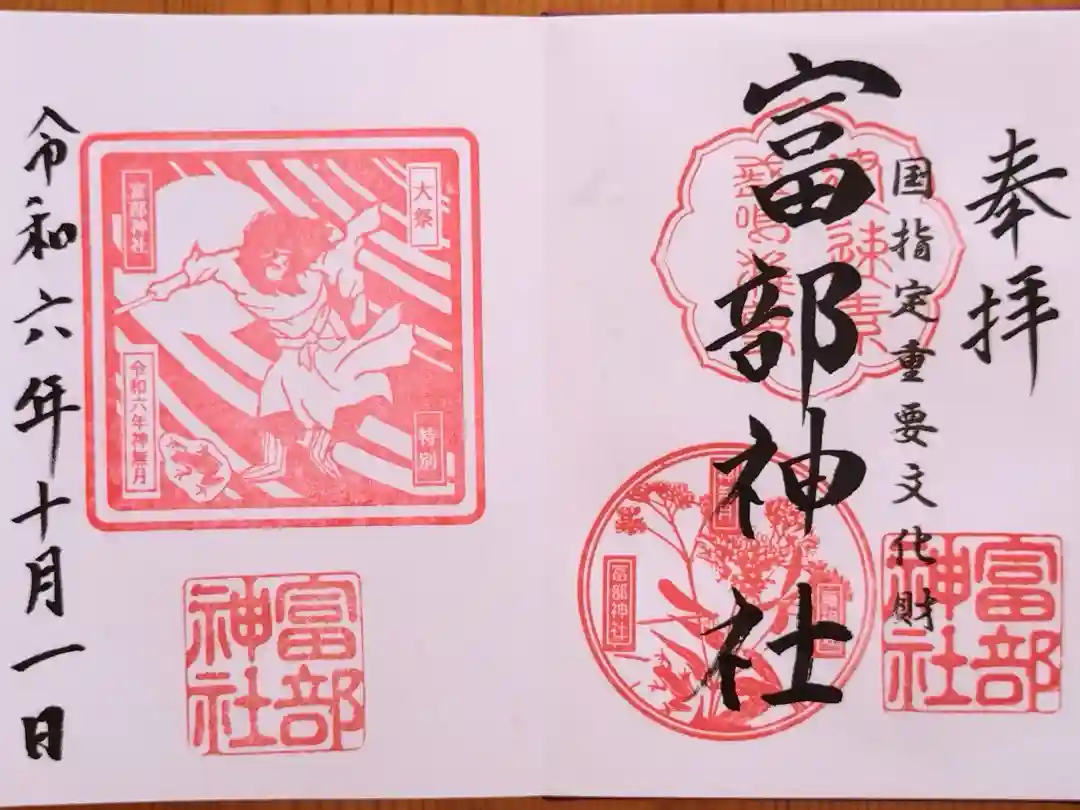 奉拝
国指定重要文化財
富部神社
素鳴
速素
富部神社
富部神社
大祭
特別
富部神社
令和六年神無月
富部神社
令和六年十月一日